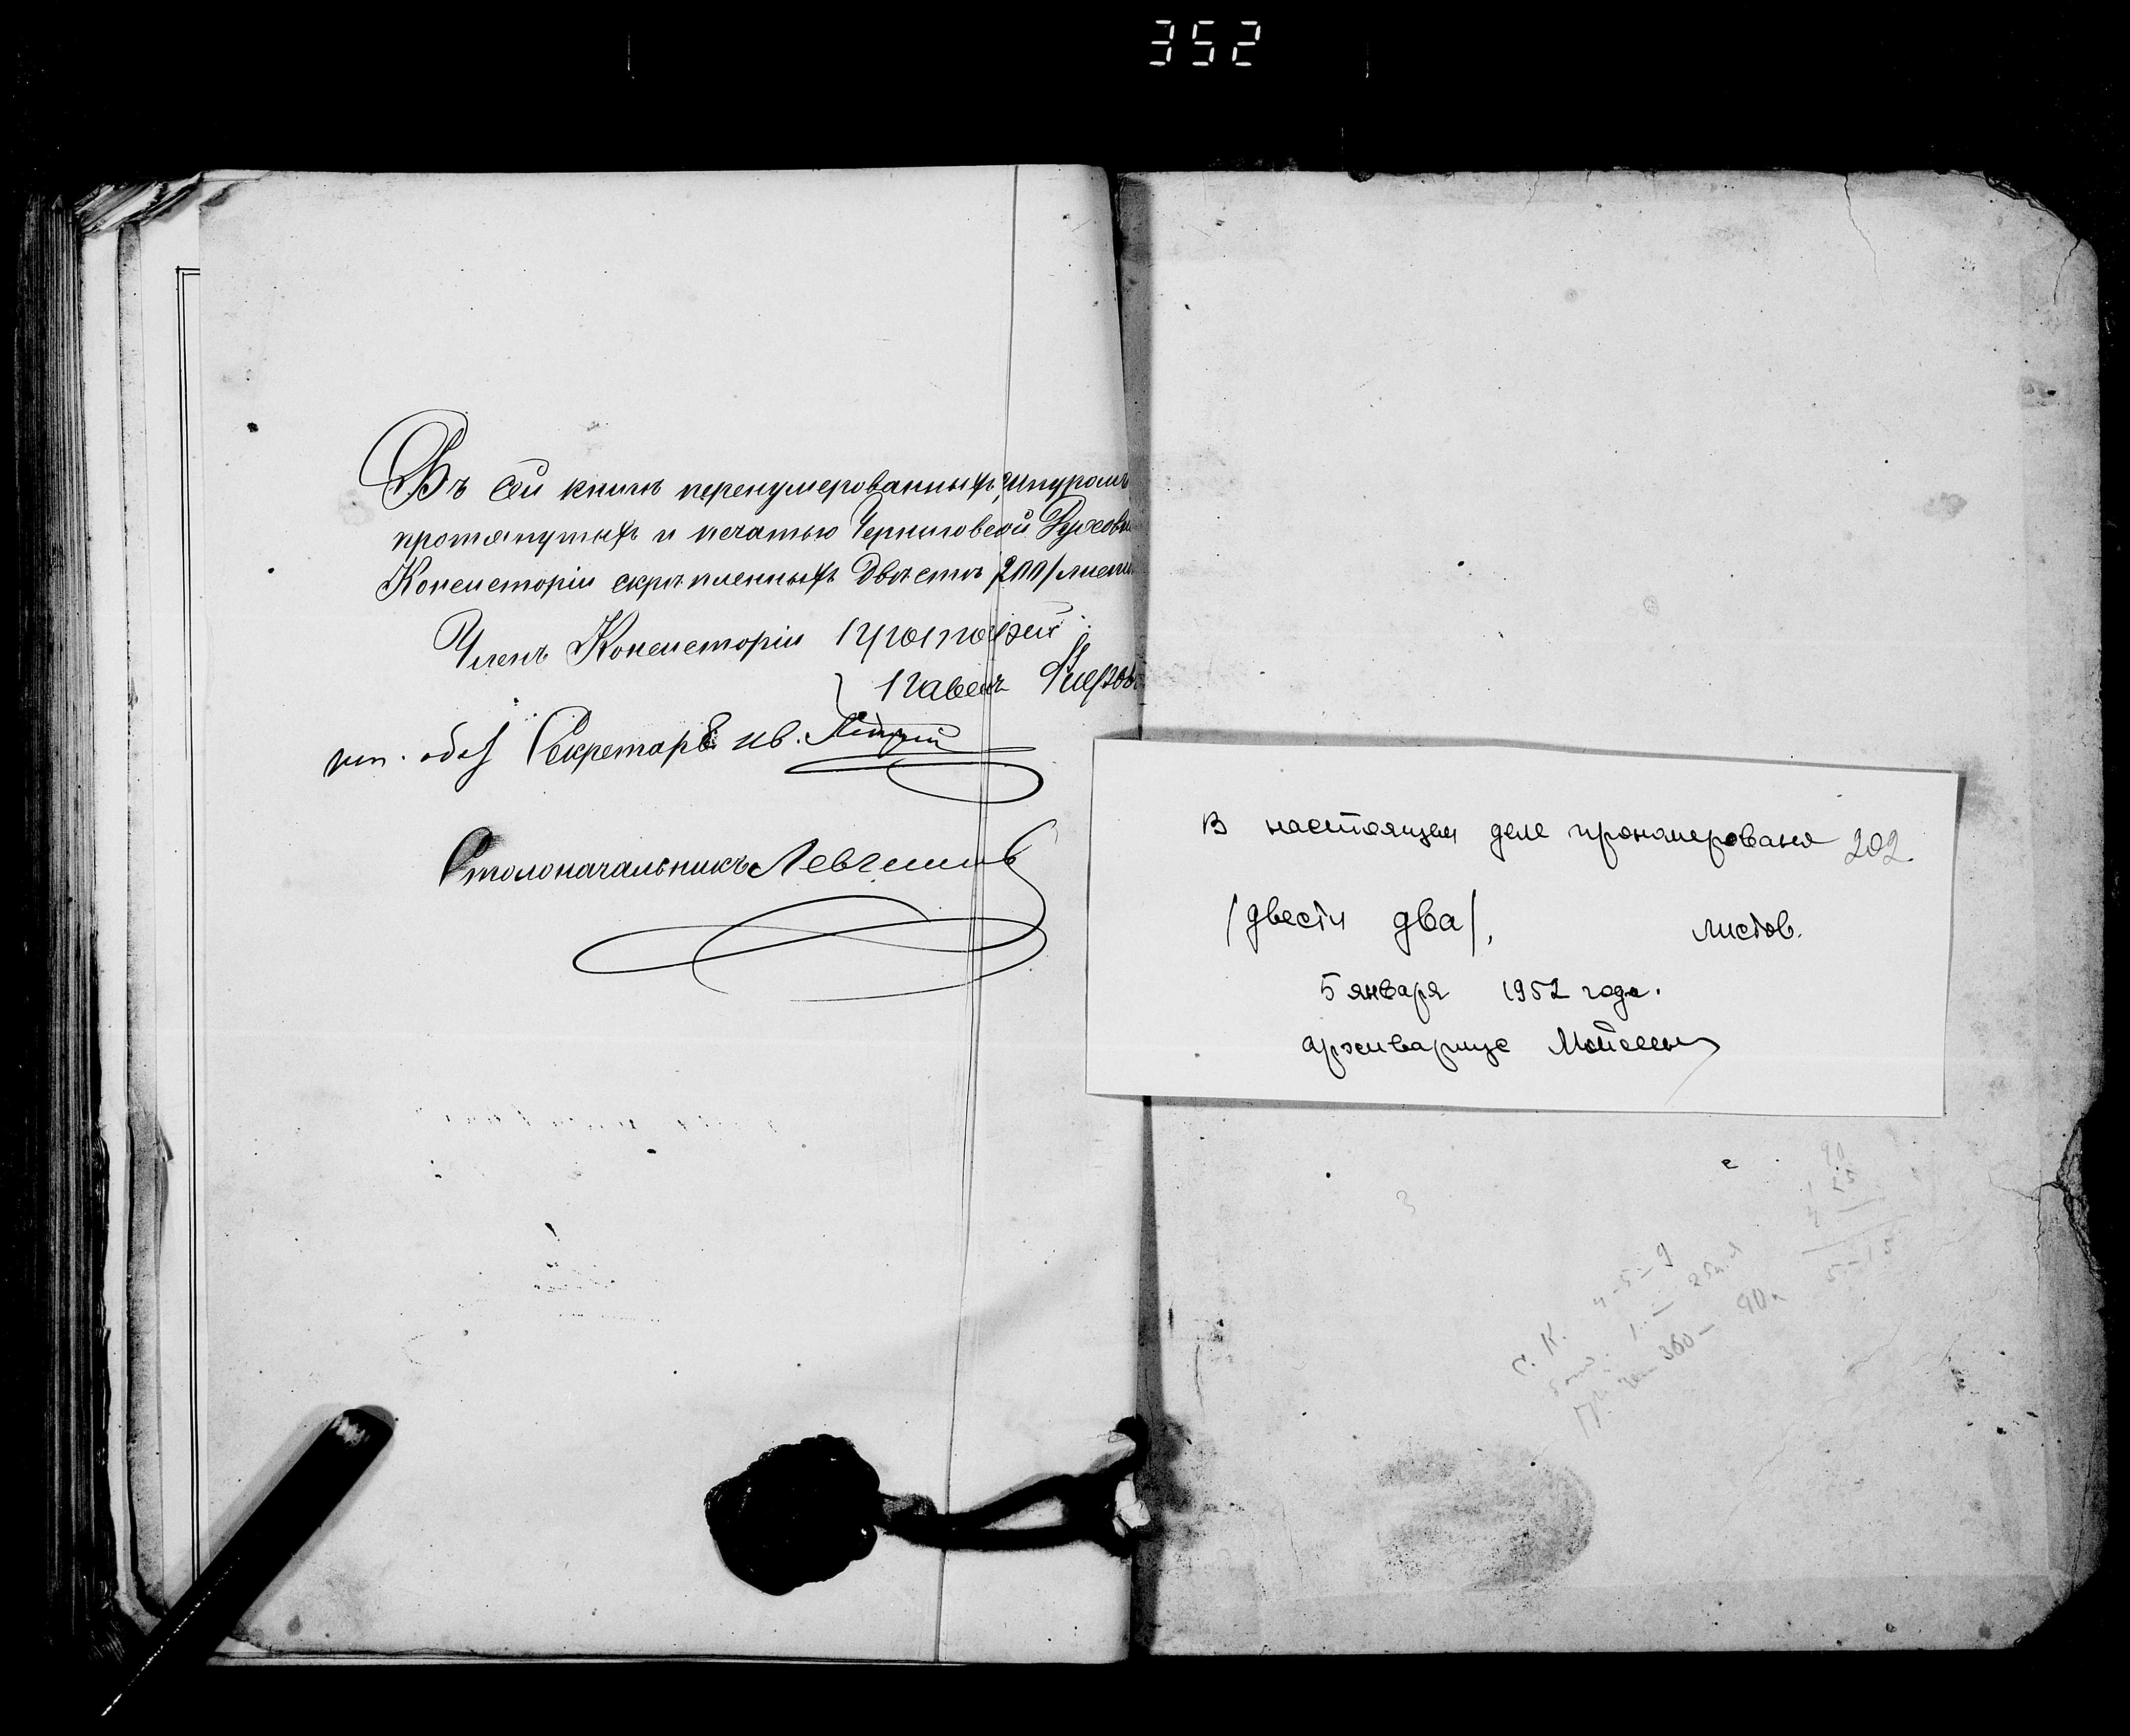 352
Въ сей книгѣ перенумерованныхъ, шнуромъ
протянутыхъ и печатью Черниговской Духовн
Консисторіи скрѣпленныхъ двѣстѣ /200/ листо
Членъ Консисторіи Протоіерей
Павелъ
исп. обяз Секретаря
Столоначальникъ
В настоящем деле прономеровано 202
/двести два/, листов.
5 января 1952 года.
архивариус
с. К. 4-5-9
360 - 90к
90
25
5-15